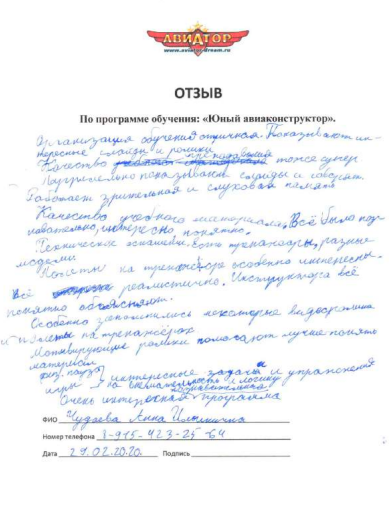 АВИАТОР
www.aviator-dream.ru
ОТЗЫВ
По программе обучения: «Юный авиаконструктор».
Организация обучения отличная. Показывают ин-
тересные слайды и ролики
Качество преподавания тоже супер
показывают слайды и говорят
Работает зрительная и слуховая память
Качество учебного материала. Всё было поз-
навательно, интересно, понятно.
Техническое оснащение. Есть тренажёры, разные
модели.
Полёты на тренажёре особенно интересны.
Всё реалистично. Инструктора всё
понятно объясняют.
Особенно запомнились некоторые видеоролики
и полёты на тренажёрах
Мотивирующие ролики помогают лучше понять
материал
физ. паузы, интересные задачи и упражнения
игры на внимательность и логику
познавательная
Очень интересная программа
ФИО Чудаева Анна Ильинична
Номер телефона 8-915-423-25-64
Дата 29.02.2020. Подпись